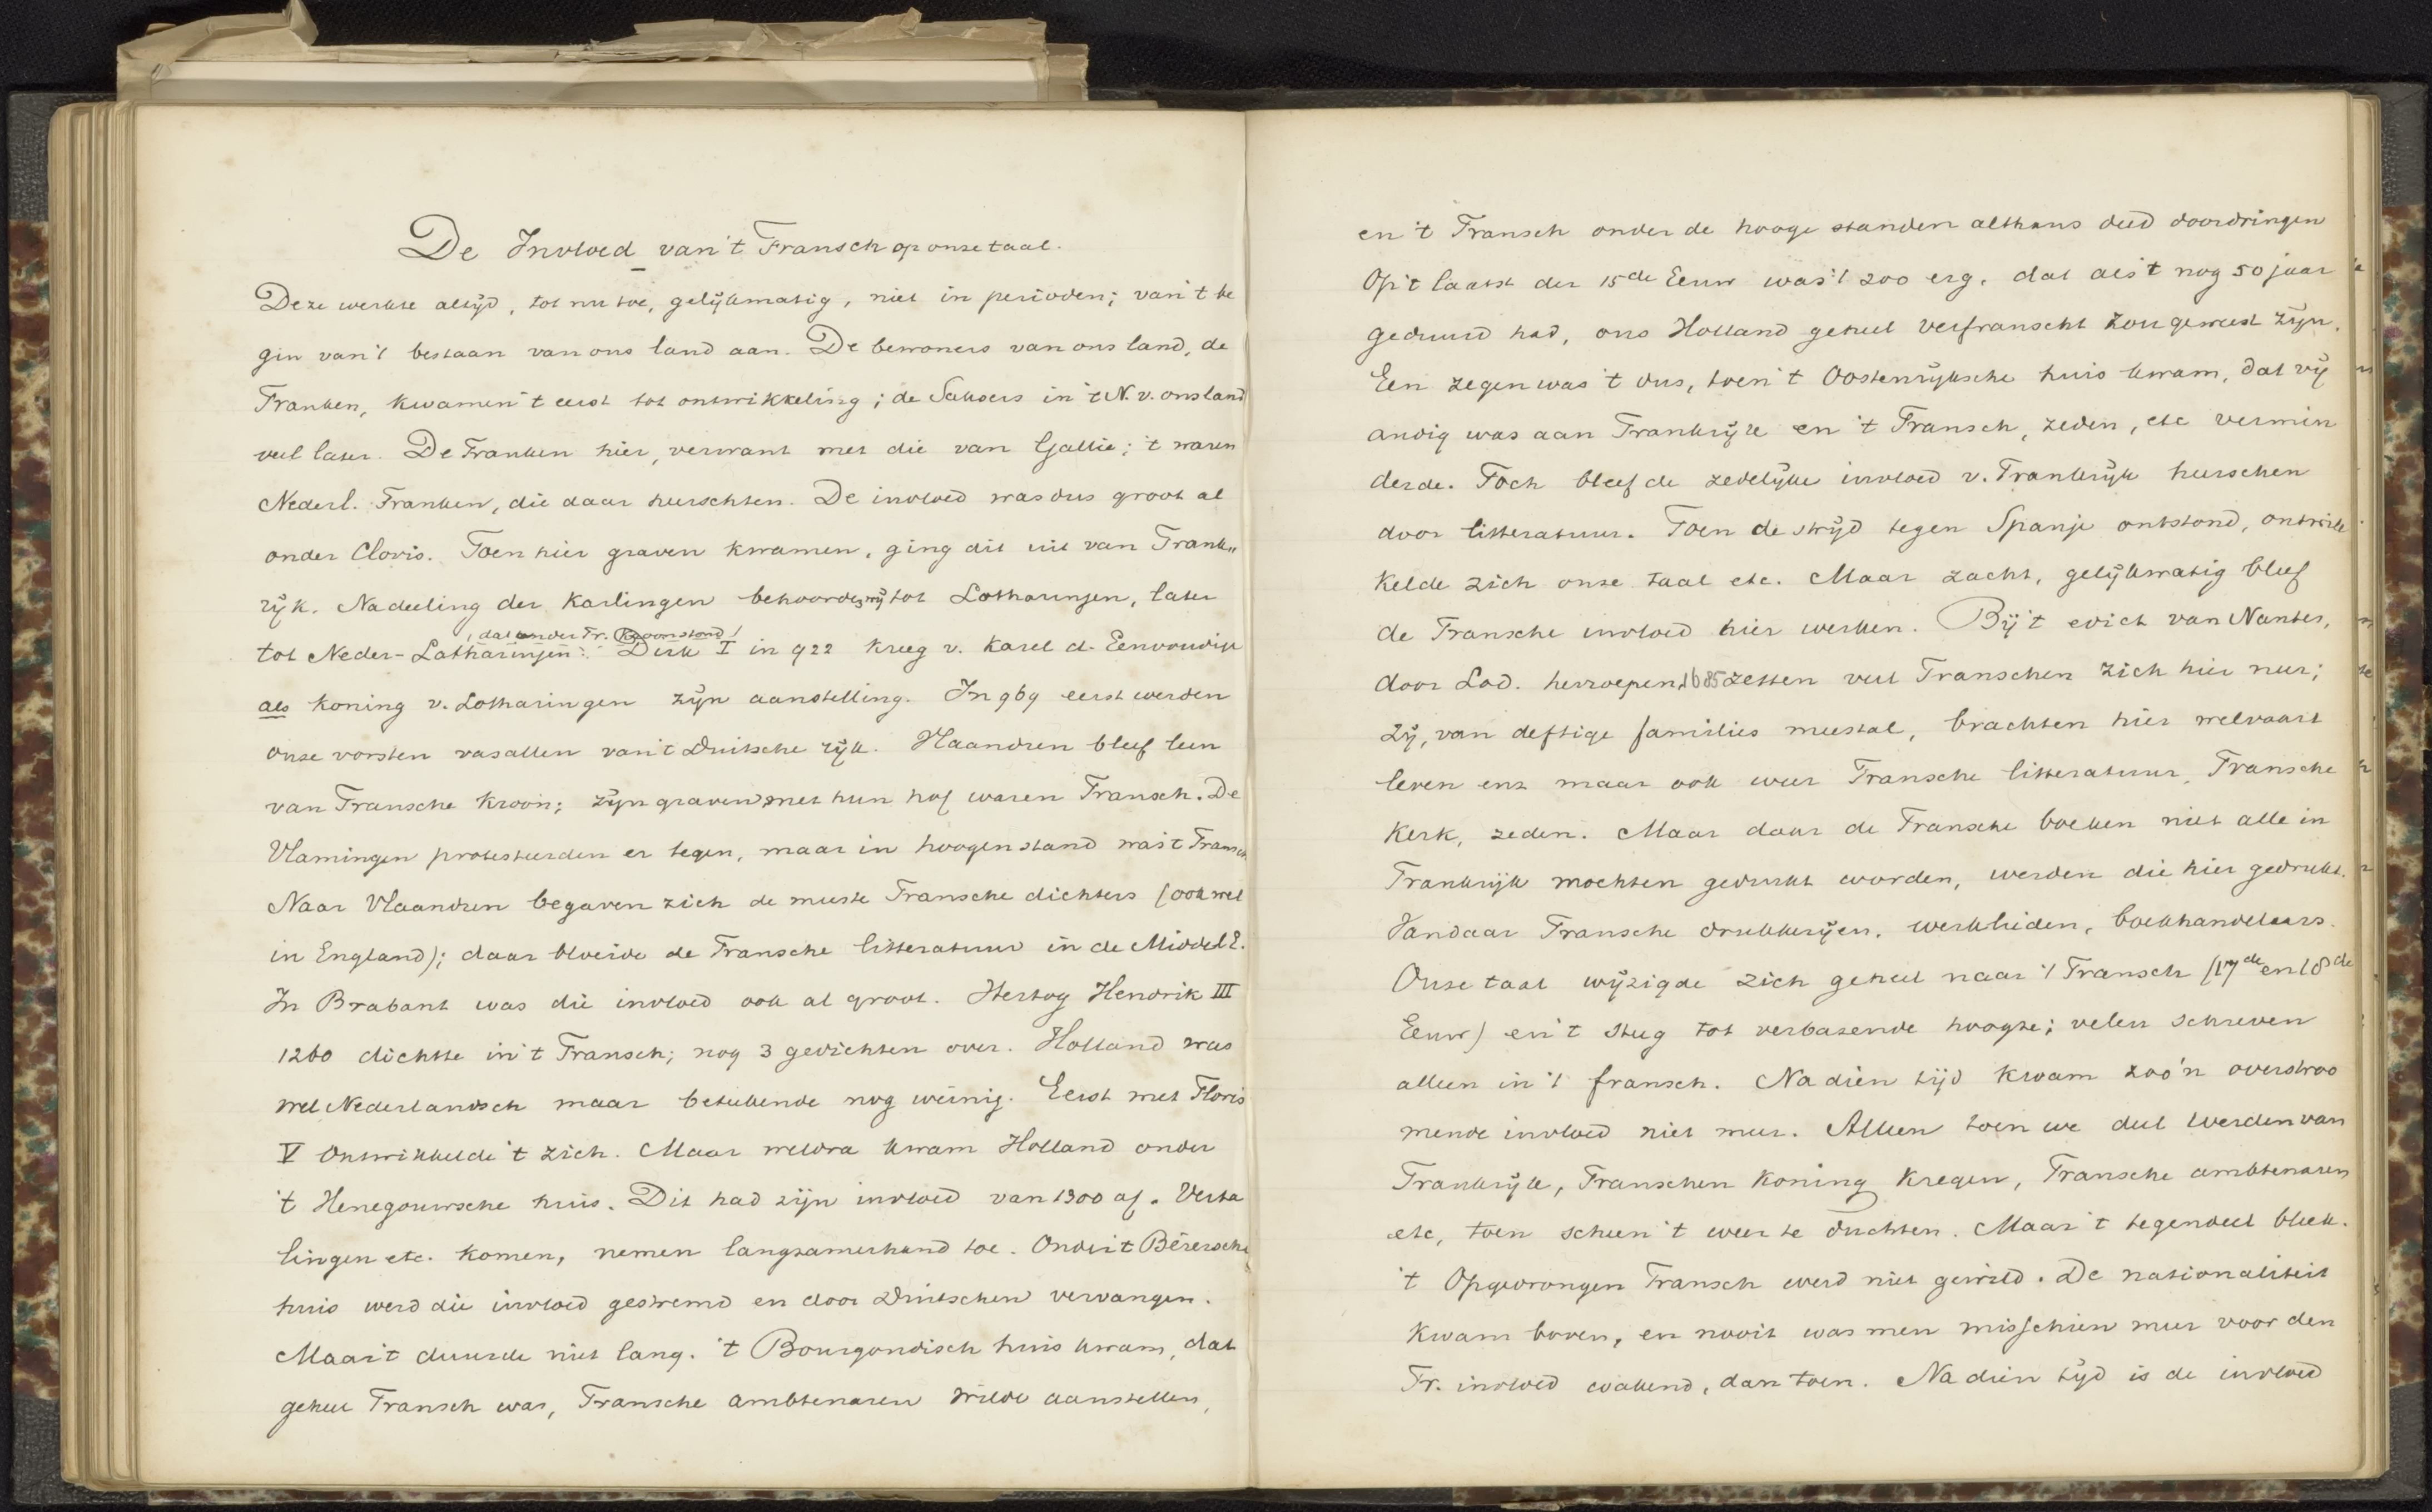 De Invloed van 't Fransch op onze taal.
Deze werkte altijd, tot nu toe, gelijkmatig, niet in perioden; van 't be
gin van 't bestaan van ons land aan. De bewoners van ons land, de
Franken, kwamen 't eerst tot ontwikkeling; de Saksers in 't N. v. ons land
veel later. De Franken hier, verwant met die van Gallie; 't waren
Nederl. Franken, die daar heerschten. De invloed was dus groot al
onder Clovis. Toen hier graven kwamen, ging dit uit van Frank„
rijk. Na deeling der Karlingen behoorden wij tot Lotharingen, later
, dat onder Fr. Kroon stond,
tot Neder-Lotharingen: Dirk I in 922 kreeg v. Karel d. Eenvoudige
als koning v. Lotharingen zijn aanstelling. In 969 eerst werden
onze vorsten vasallen van 't Duitsche rijk. Vlaandren bleef leen
van Fransche kroon; zijn graven met hun hof waren Fransch. De
Vlamingen protesteerden er tegen, maar in hoogen stand was 't Fransch
Naar Vlaandren begaven zich de meeste Fransche dichters (ook wel
in England); daar bloeide de Fransche litteratuur in de Middel E.
In Brabant was die invloed ook al groot. Hertog Hendrik III
1260 dichtte in 't Fransch; nog 3 gedichten over. Holland was
wel Nederlandsch maar beteekende nog weinig. Eerst met Floris
V ontwikkelde 't zich. Maar weldra kwam Holland onder
't Henegouwsche huis. Dit had zijn invloed van 1300 af. Verta
lingen etc. komen, nemen langzamerhand toe. Onder 't Beiersche
huis werd die invloed gestremd en door Duitschen vervangen.
Maar 't duurde niet lang. 't Bourgondisch huis kwam, dat
geheel Fransch was, Fransche ambtenaren wilde aanstellen,
en 't Fransch onder de hooge standen althans deed doordringen
Op 't laatst der 15de Eeuw was 't zoo erg, dat als 't nog 50 jaar
geduurd had, ons Holland geheel verfranscht zou geweest zijn.
Een zegen was 't dus, toen 't Oostenrijksche huis kwam, dat vij
andig was aan Frankrijk en 't Fransch, zeden, etc vermin
derde. Toch bleef de zedelijke invloed v. Frankrijk heerschen
door litteratuur. Toen de strijd tegen Spanje ontstond, ontwik
kelde zich onze taal etc. Maar zacht, gelijkmatig bleef
de Fransche invloed hier werken. Bij 't edict van Nantes,
door Lod. herroepen, 1685 zetten veel Franschen zich hier neer;
zij, van deftige families meestal, brachten hier welvaart
leven enz maar ook weer Fransche litteratuur, Fransche
kerk, zeden. Maar daar de Fransche boeken niet alle in
Frankrijk mochten gedrukt worden, werden die hier gedrukt.
Vandaar Fransche drukkerijen, werklieden, boekhandelaars.
Onze taal wijzigde zich geheel naar 't Fransch (17de en 18de
Eeuw) en 't steeg tot verbazende hoogte; velen schreven
alleen in 't fransch. Na dien tijd kwam zoo'n overstroo
mende invloed niet meer. Alleen toen we deel werden van
Frankrijk, Franschen koning kregen, Fransche ambtenaren
etc, toen scheen 't weer te duchten. Maar 't tegendeel bleek.
't Opgedrongen Fransch werd niet gewild. De nationaliteit
kwam boven, en nooit was men misschien meer voor den
Fr. invloed wakend, dan toen. Na dien tijd is de invloed